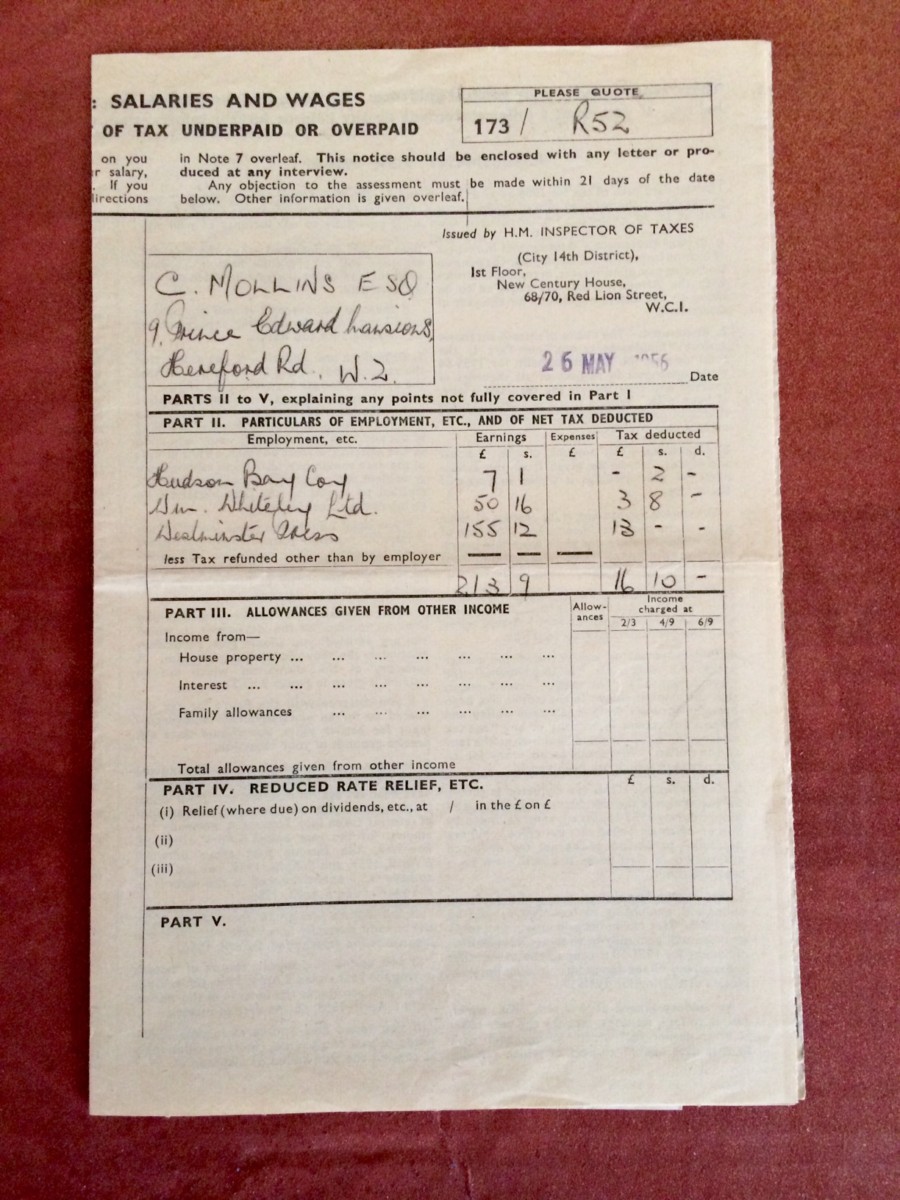 : SALARIES AND WAGES
OF TAX UNDERPAID OR OVERPAID
PLEASE QUOTE
173 / R52
on you
r salary,
. If you
directions
in Note 7 overleaf. This notice should be enclosed with any letter or pro-
duced at any interview.
Any objection to the assessment must be made within 21 days of the date
below. Other information is given overleaf.
Issued by H.M. INSPECTOR OF TAXES
(City 14th District),
1st Floor,
New Century House,
68/70, Red Lion Street,
W.C.I.
C. MOLLINS ESQ
9, Prince Edward Mansions,
Hereford Rd. W.2.
26 MAY 1956
Date
PARTS II to V, explaining any points not fully covered in Part I
PART II. PARTICULARS OF EMPLOYMENT, ETC., AND OF NET TAX DEDUCTED
Employment, etc. Earnings Expenses Tax deducted
£ s. £ £ s. d.
Hudson Bay Coy 7 1 - 2 -
Wm. Whiteley Ltd. 50 16 3 8 -
Westminster Press 155 12 13 - -
less Tax refunded other than by employer
213 9 16 10 -
PART III. ALLOWANCES GIVEN FROM OTHER INCOME
Allow-
ances
Income
charged at
2/3 4/9 6/9
Income from—
House property ... ... ... ... ... ... ...
Interest ... ... ... ... ... ... ...
Family allowances ... ... ... ... ... ...
Total allowances given from other income
PART IV. REDUCED RATE RELIEF, ETC.
£ s. d.
(i) Relief (where due) on dividends, etc., at / in the £ on £
(ii)
(iii)
PART V.